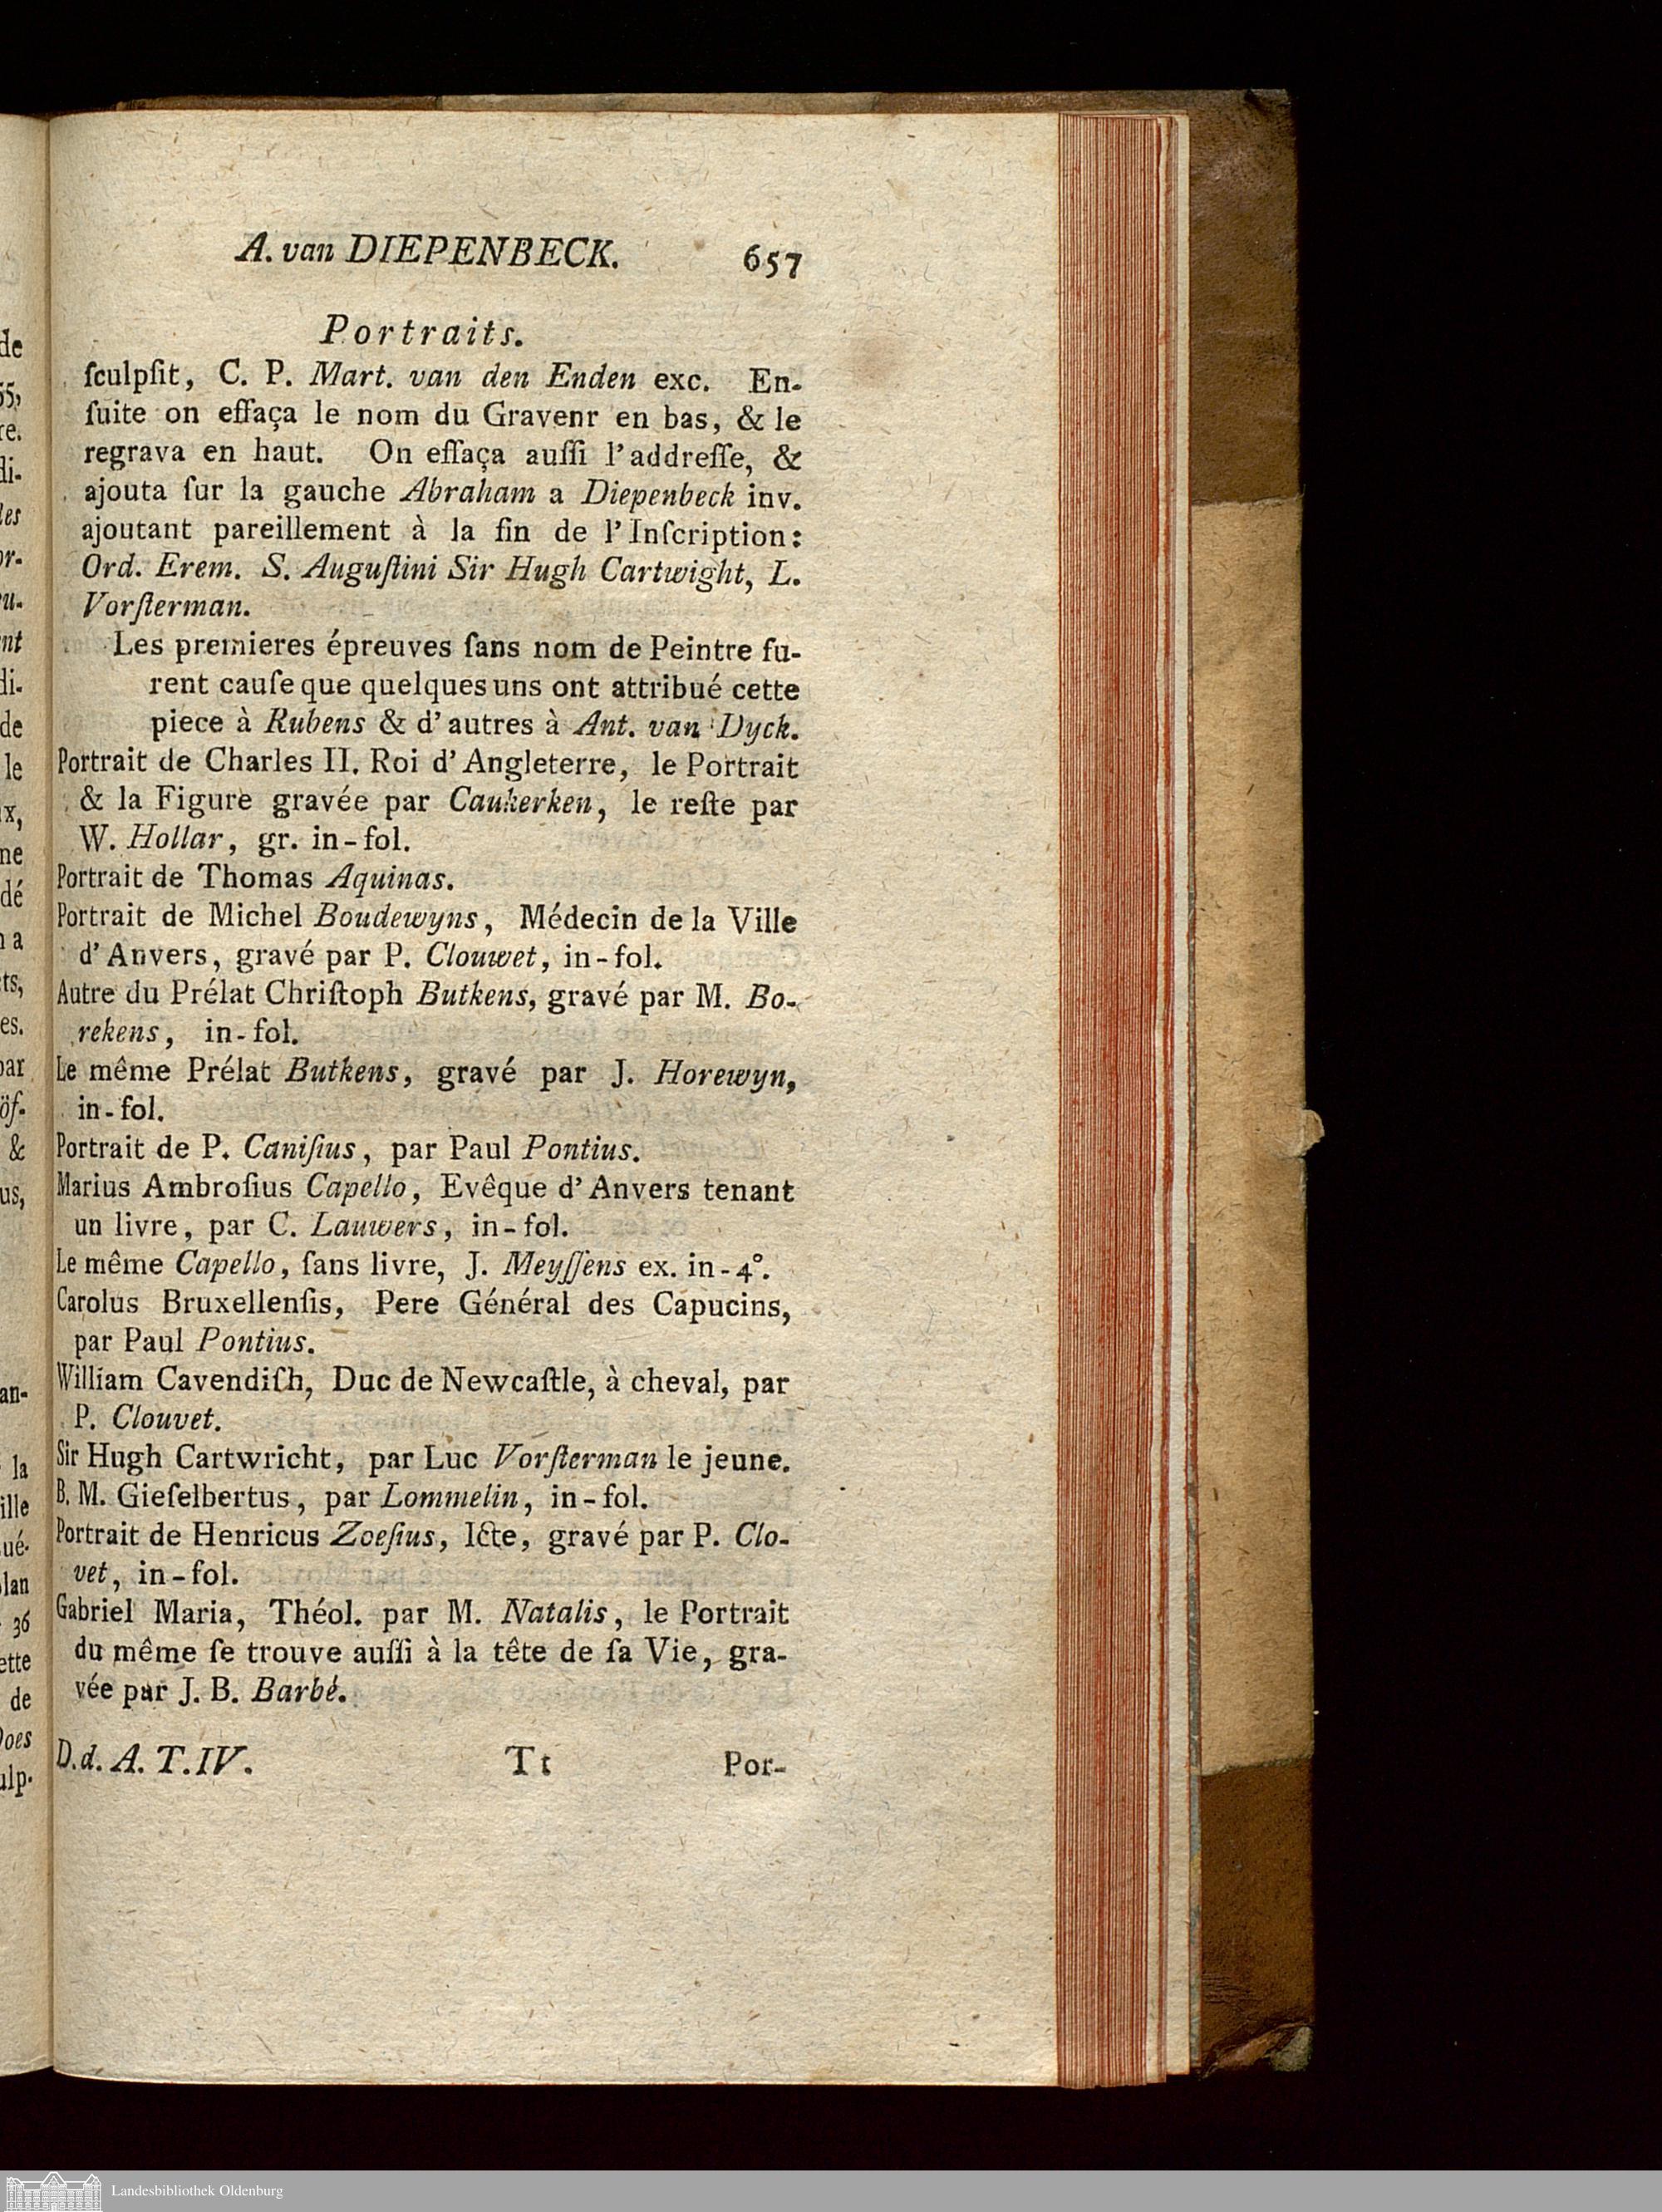 A. van DIEPENBECK. 657
Portraits.
ſculpſit, C. P. Mart. van den Enden exc. En-
ſuite on effaça le nom du Gravenr en bas, & le
regrava en haut. On effaça auſſi l'addreſſe, &
ajouta ſur la gauche Abraham a Diepenbeck inv.
ajoutant pareillement à la fin de l'Inſcription:
Ord. Erem. S. Auguſtini Sir Hugh Cartwight, L.
Vorſterman.
Les premieres épreuves ſans nom de Peintre fu-
rent cauſe que quelques uns ont attribué cette
piece à Rubens & d'autres à Ant. van Dyck.
Portrait de Charles II. Roi d'Angleterre, le Portrait
& la Figure gravée par Caukerken, le reſte par
W. Hollar, gr. in-fol.
Portrait de Thomas Aquinas.
Portrait de Michel Boudewyns, Médecin de la Ville
d'Anvers, gravé par P. Clouwet, in-fol.
Autre du Prélat Chriſtoph Butkens, gravé par M. Bo-
rekens, in-fol.
Le même Prélat Butkens, gravé par J. Horewyn,
in-fol.
Portrait de P. Caniſius, par Paul Pontius.
Marius Ambroſius Capello, Evêque d'Anvers tenant
un livre, par C. Lauwers, in-fol.
Le même Capello, ſans livre, J. Meyſſens ex. in-4°.
Carolus Bruxellenſis, Pere Général des Capucins,
par Paul Pontius.
William Cavendiſh, Duc de Newcaſtle, à cheval, par
P. Clouvet.
Sir Hugh Cartwricht, par Luc Vorſterman le jeune.
B. M. Gieſelbertus, par Lommelin, in-fol.
Portrait de Henricus Zoeſius, Icte, gravé par P. Clo-
vet, in-fol.
Gabriel Maria, Théol. par M. Natalis, le Portrait
du même ſe trouve auſſi à la tête de ſa Vie, gra-
vée par J. B. Barbé.
D.d. A. T.IV. Tt Por-
Landesbibliothek Oldenburg